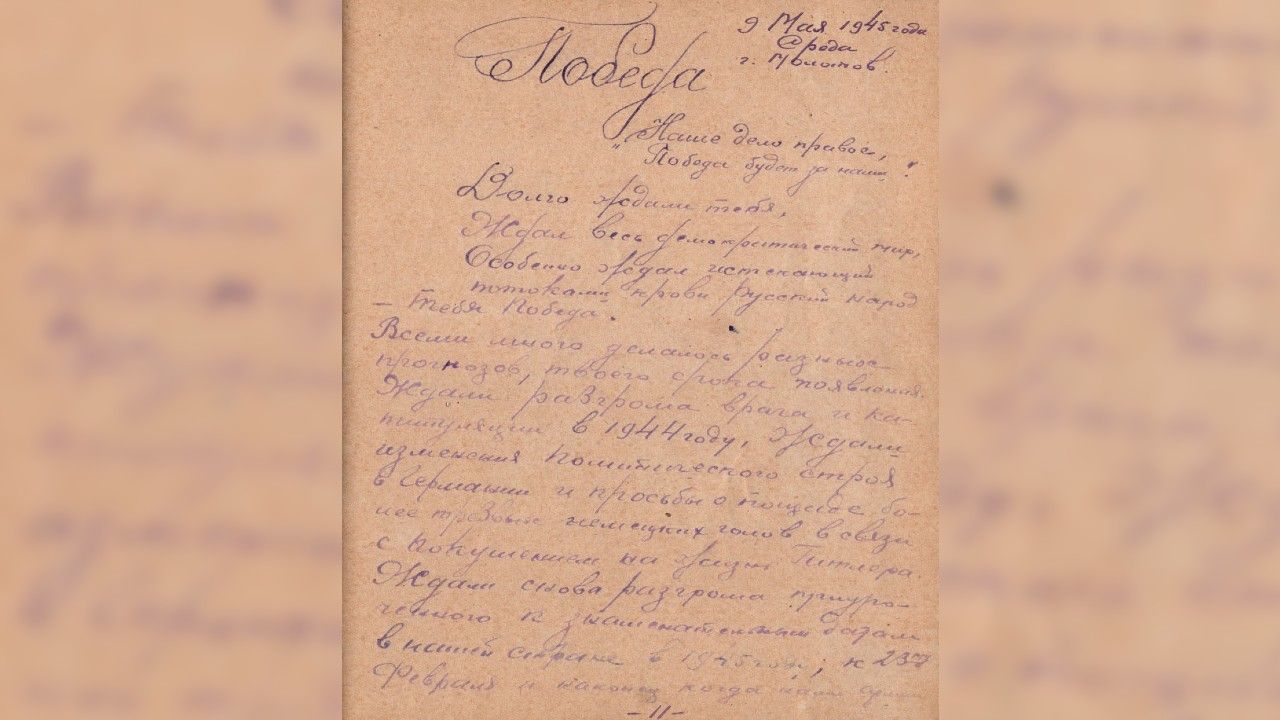 9 Мая 1945 года
Среда
г. Молотов.
Победа
"Наше дело правое,
Победа будет за нами"!
Долго ждали тебя,
Ждал весь демократический мир,
Особенно ждал истекающий
потоками крови русский народ
– Тебя Победа.
Всеми много делалось разных
прогнозов, твоего срока появления.
Ждали разгрома врага и ка-
питуляции в 1944 году, Ждали
изменения политического строя
в Германии и просьбы о пощаде бо-
лее трезвых немецких голов в связи
с покушением на жизнь Гитлера.
Ждали снова разгрома приуро-
ченного к знаменательным датам
в нашей стране в 1945 году; к 23
Февраля и наконец когда наши
-11-